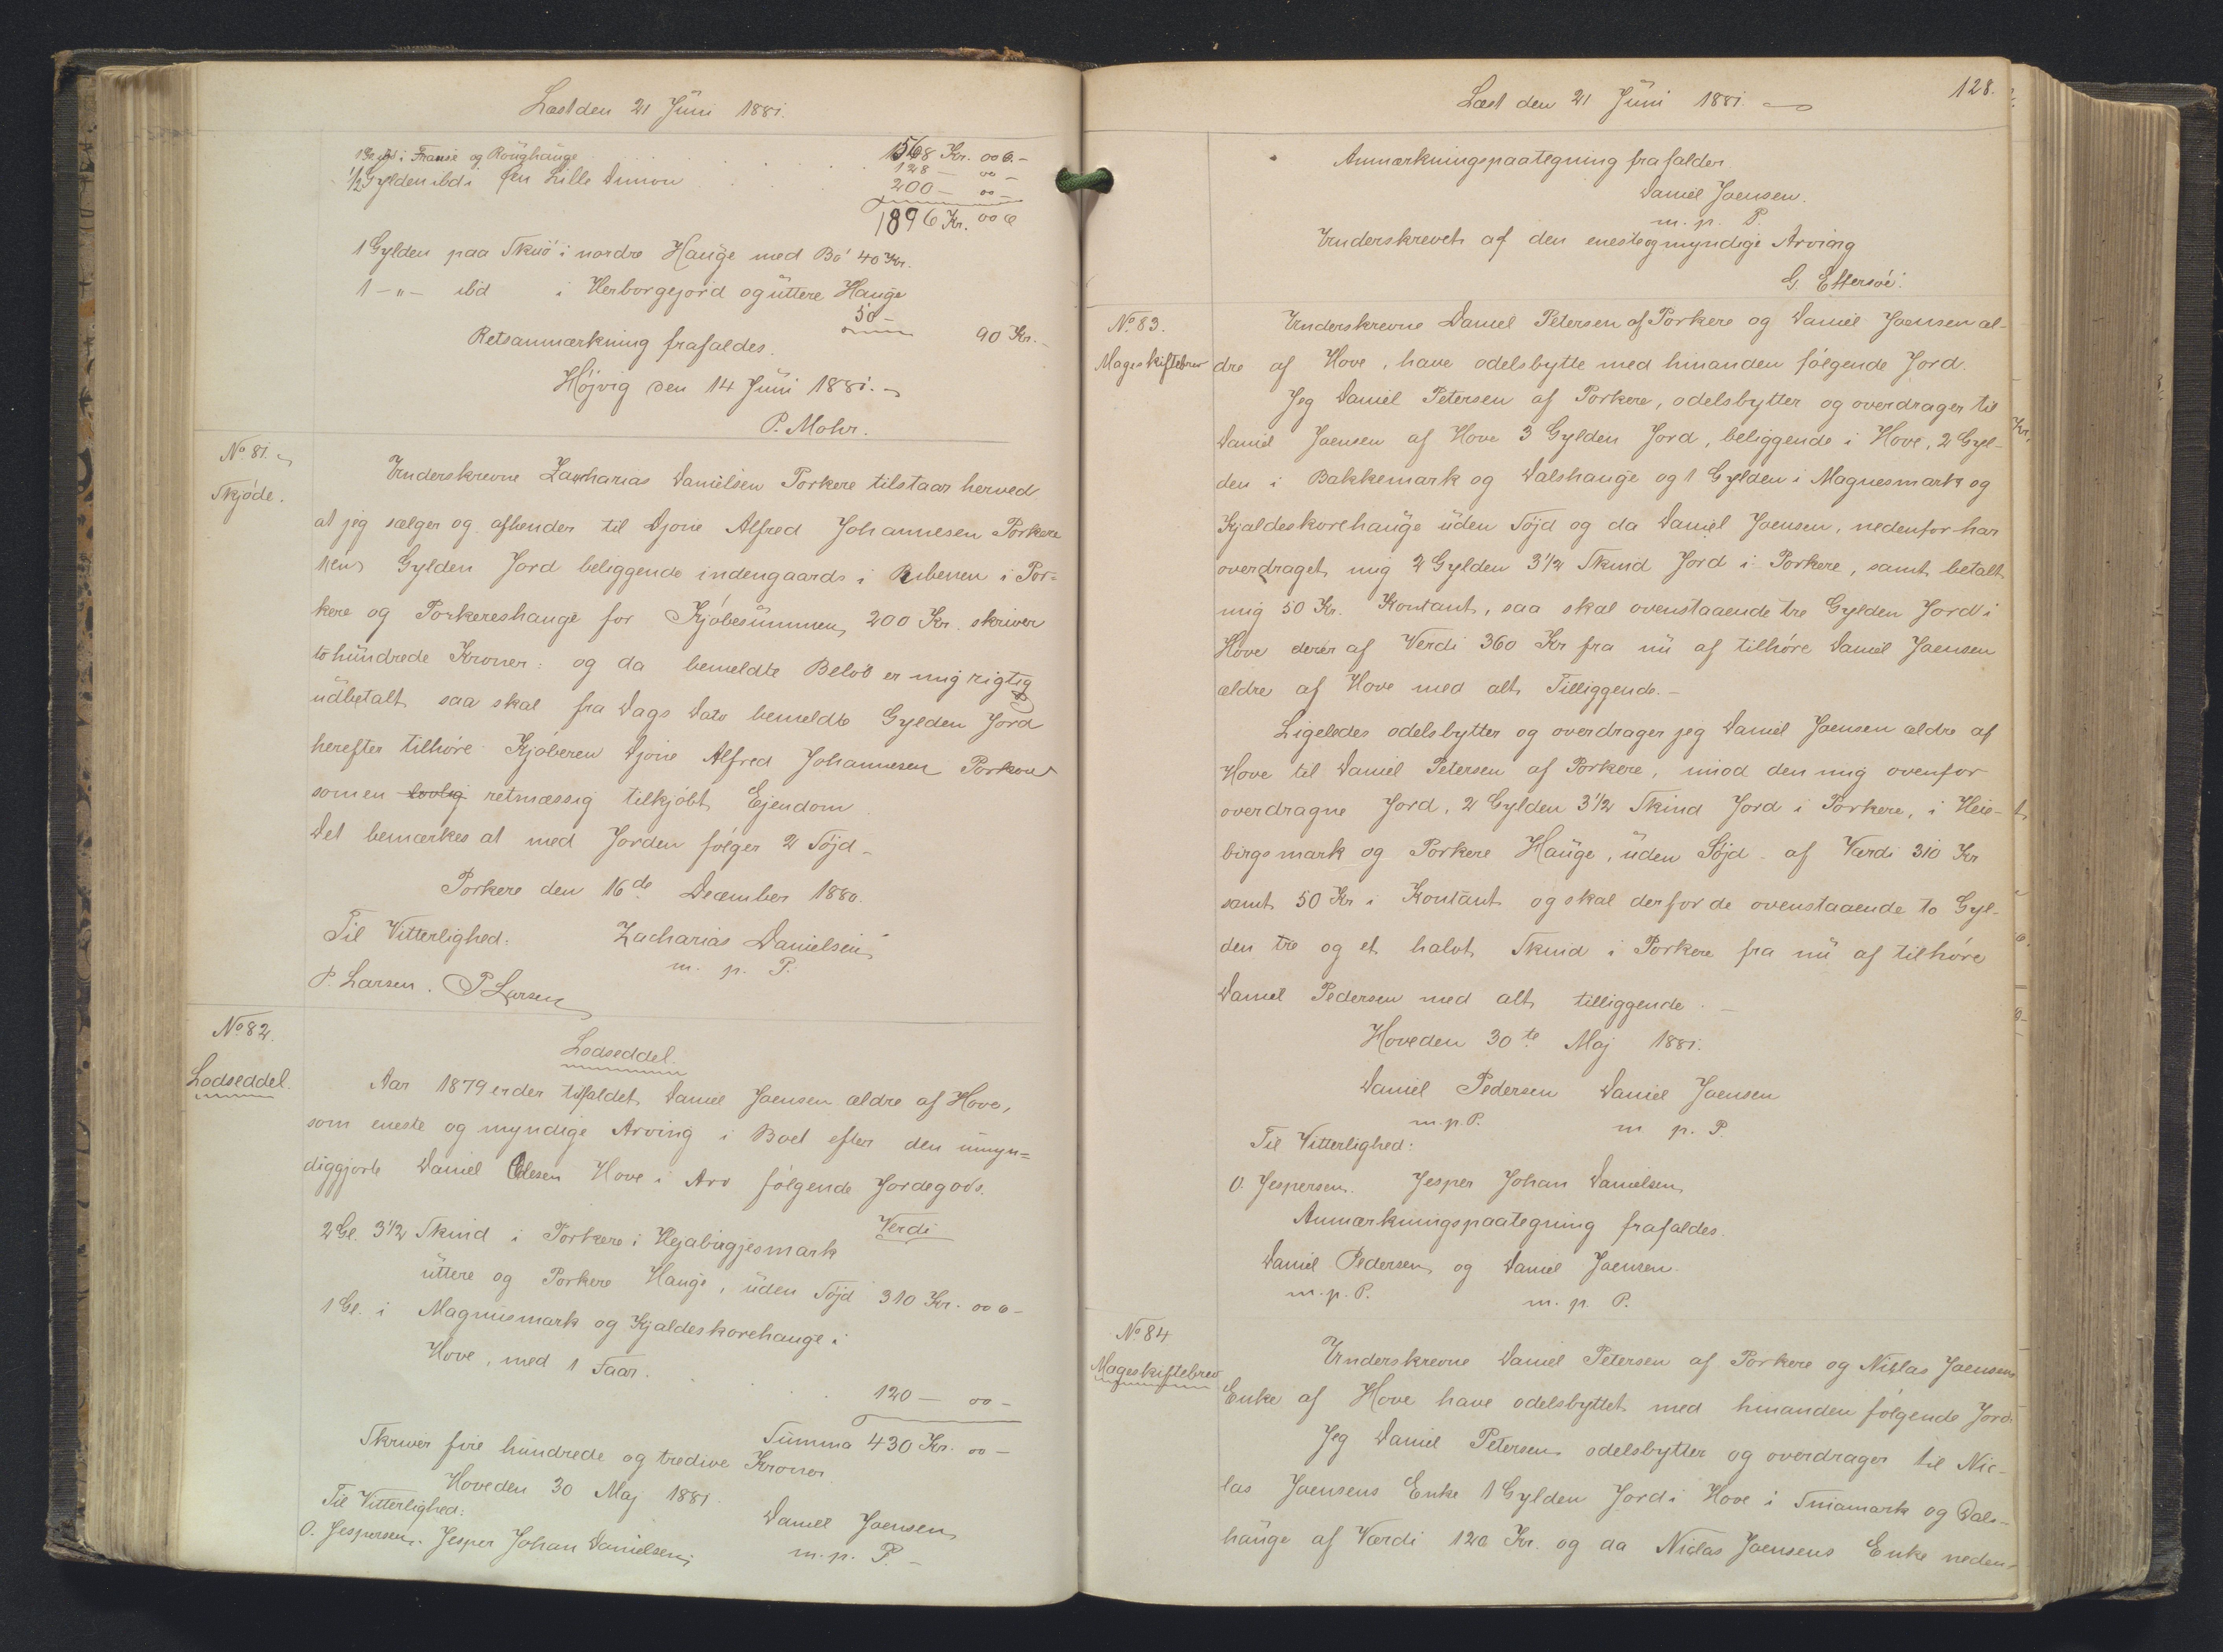 Læst den 21 Juni 1881.
1568 Kr. 00 Ø. -
1 Gl. ibd i Franse og Roughauge . . . . 128 - 00 -
1/2 Gylden ibd i Øen Lille Dimon . . . 200 - 00 -
1896 Kr. 00 Ø
1 Gylden paa Skuø i nordre Hauge med Bø 40 Kr.
1 - " - ibd i Herborgejord og uttere Hauge
50 -
90 Kr. -
Retsanmærkning frafaldes.
Højvig den 14 Juni 1881. -
P. Mohr.
No 81.
Skjøde.
Underskrevne Zacharias Danielsen Porkere tilstaar herved
at jeg sælger og afhender til Djone Alfred Johannesen Porkere
1 (en) Gylden Jord beliggende indengaards i Ribenen i Por=
kere og Porkereshauge for Kjøbesummen 200 Kr. skriver
to hundrede Kroner: og da bemeldte Beløb er mig rigtig
udbetalt saa skal fra Dags Dato bemeldte Gylden Jord
herefter tilhøre Kjøberen Djone Alfred Johannesen Porkere
som en lovlig retmæssig tilkjøbt Ejendom.
Det bemærkes at med Jorden følger 2 Søjd -
Porkere den 16de December 1880.
Til Vitterlighed: Zacharias Danielsen
m. p. P.
P. Larsen. P Larsen
No 82.
Lodseddel.
Lodseddel.
Aar 1879 er der tilfaldet Daniel Joensen ældre af Hove,
som eneste og myndige Arving i Boet efter den umyn=
diggjorte Daniel Olesen Hove i Arv følgende Jordegods.
Verdi
2 Gl. 3 1/2 Skind i Porkere i Hejabirgjesmark
uttere og Porkere Hauge, uden Søjd 310 Kr. 00 Ø -
1 Gl. i Magnusmark og Kjaldeskorehauge i
Hove, med 1 Faar. . . . 120 - 00 -
Summa 430 Kr. 00 -
Skriver fire hundrede og tredive Kroner
Hove den 30 Maj 1881.
Til Vitterlighed: Daniel Joensen
O. Jespersen. Jesper Johan Danielsen m. p. P. -
Læst den 21 Juni 1881.
128.
Anmærkningspaategning frafalder
Daniel Joensen.
m. p. P.
Underskrevet af den eneste og myndige Arving
G. Effersøe.
No 83.
Mageskiftebrev
Underskrevne Daniel Petersen af Porkere og Daniel Joensen æl-
dre af Hove, have odelsbytte med hinanden følgende Jord.
Jeg Daniel Petersen af Porkere, odelsbytter og overdrager til
Daniel Joensen af Hove 3 Gylden Jord, beliggende i Hove, 2 Gyl-
den i Bakkemark og Dalshauge og 1 Gylden i Magnesmark og
Kjaldeskorehauge uden Søjd og da Daniel Joensen, nedenfor har
overdraget mig 2 Gylden 3 1/2 Skind Jord i Porkere, samt betalt
mig 50 Kr. Kontant, saa skal ovenstaaende tre Gylden Jord i
Hove der er af Verdi 360 Kr fra nu af tilhøre Daniel Joensen
ældre af Hove med alt Tilliggende. -
Ligeledes odelsbytter og overdrager jeg Daniel Joensen ældre af
Hove til Daniel Petersen af Porkere, imod den mig ovenfor
overdragne Jord, 2 Gylden 3 1/2 Skind Jord i Porkere, i Heie-
birgsmark og Porkere Hauge, uden Søjd. af Værdi 310 Kr
samt 50 Kr i Kontant og skal derfor de ovenstaaende to Gyl-
den tre og et halvt Skind i Porkere fra nu af tilhøre
Daniel Pedersen med alt tilliggende. -
Hove den 30te Maj 1881.
Daniel Pedersen Daniel Joensen
m. p. P. m p. P.
Til Vitterlighed:
O. Jespersen. Jesper Johan Danielsen
Anmærkningspaategning frafaldes.
Daniel Pedersen og Daniel Joensen.
m. p. P. m. p. P.
No 84
Mageskiftebrev
Underskrevne Daniel Petersen af Porkere og Niclas Joensens
Enke af Hove have odelsbyttet med hinanden følgende Jord.
Jeg Daniel Petersen odelsbytter og overdrager til Nic-
las Joensens Enke 1 Gylden Jord i Hove i Sniamark og Dals-
hauge af Værdi 120 Kr. og da Niclas Joensens Enke neden-